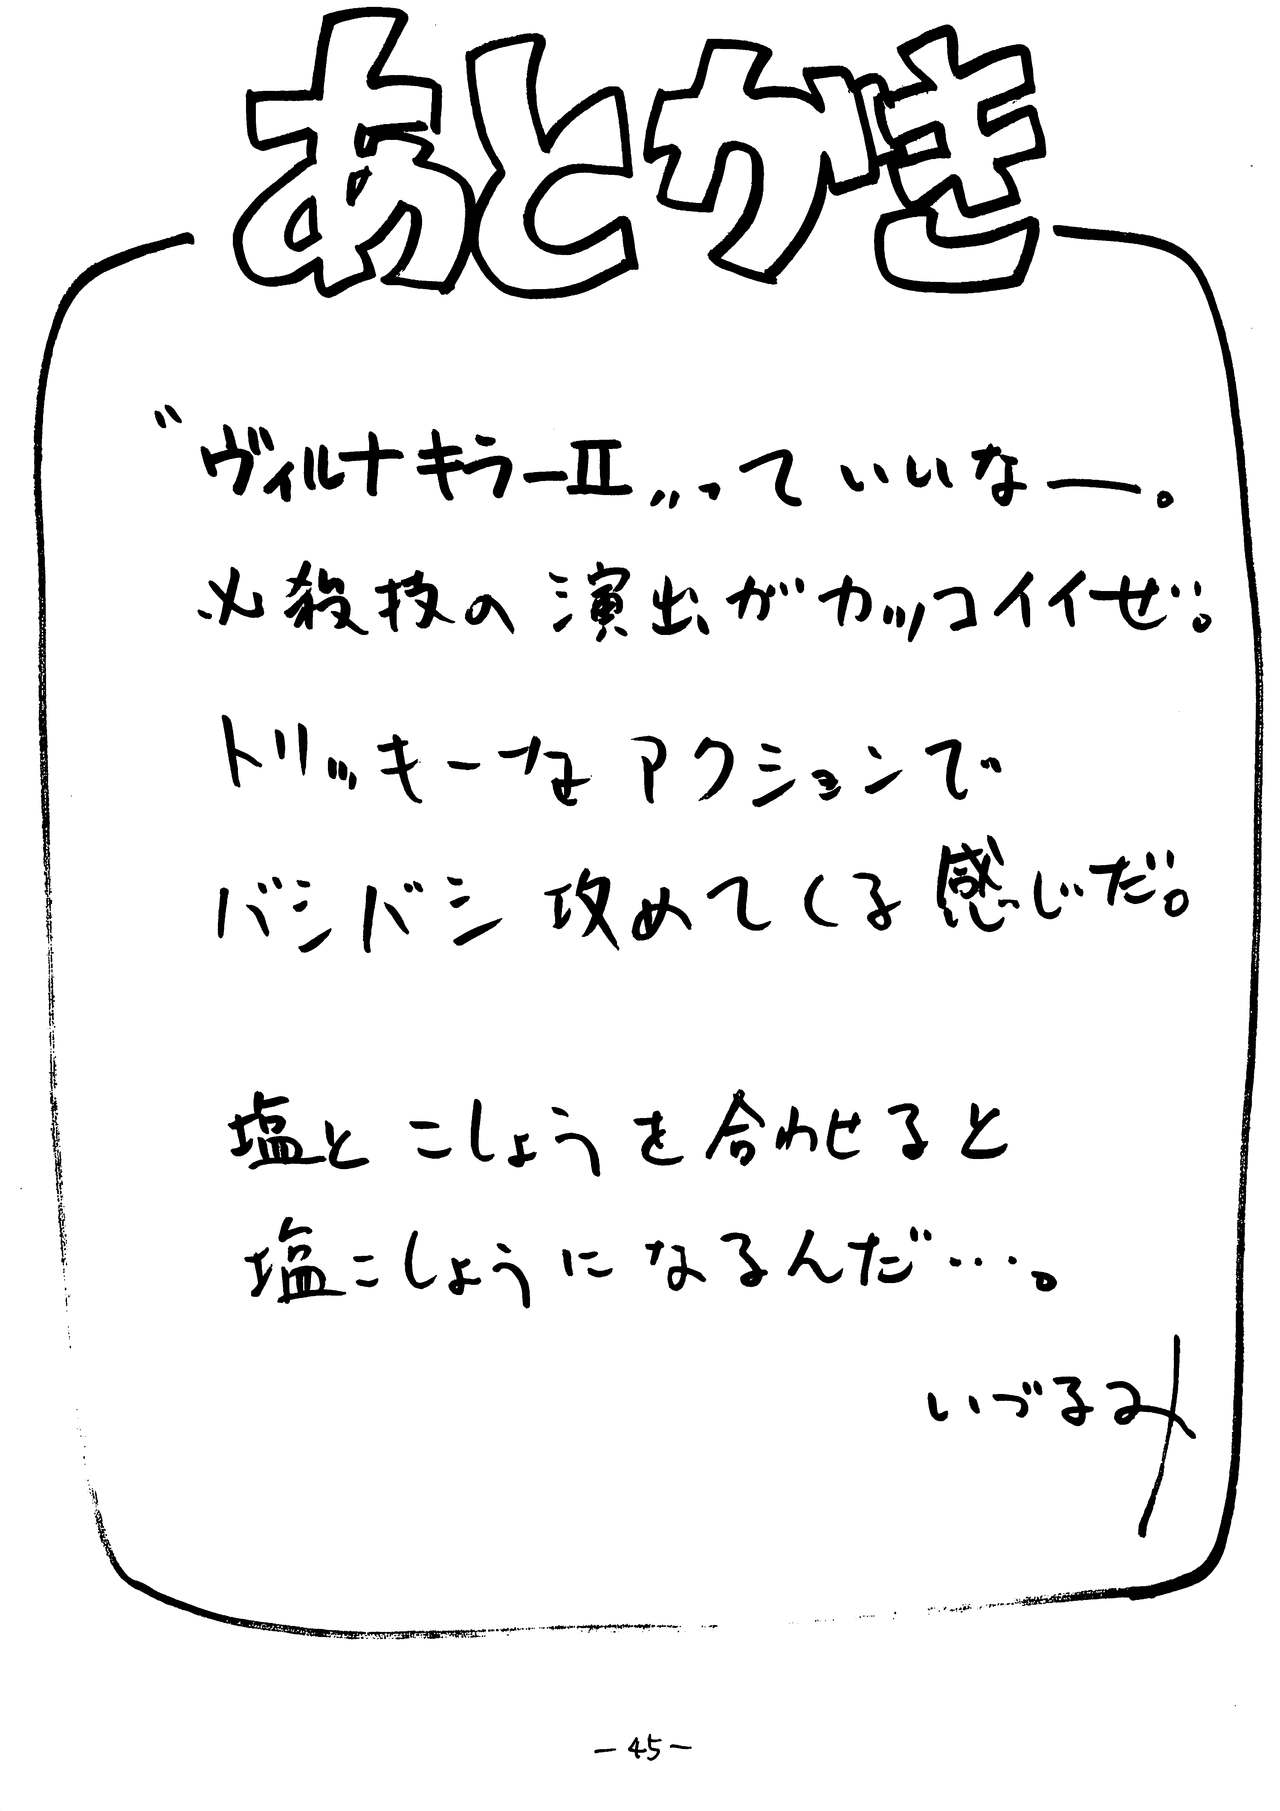 あとがき
"ヴィルナキラーⅡ〟っていいなー。
必殺技の演出がカッコイイぜ。
トリッキーなアクションで
バシバシ攻めてくる感じだ。
塩とこしょうを合わせると
塩こしょうになるんだ…。
いづるみ
-45-